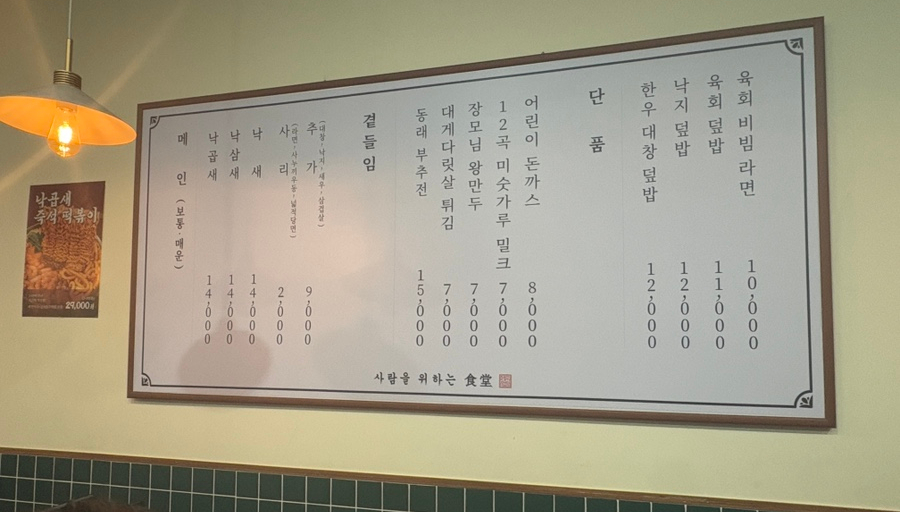 메인 (보통·매운)
낙곱새 14,000
낙삼새 14,000
낙새 14,000
사리 2,000
(라면·사누끼우동·넓적당면)
추가 9,000
(대창·낙지·새우·삼겹살)
곁들임
동래 부추전 15,000
대게다릿살 튀김 7,000
장모님 왕만두 7,000
12곡 미숫가루 밀크 7,000
어린이 돈까스 8,000
단품
한우 대창 덮밥 12,000
낙지 덮밥 12,000
육회 덮밥 11,000
육회 비빔 라면 10,000
사람을 위하는 食堂
낙곱새
즉석 떡볶이
29,000원